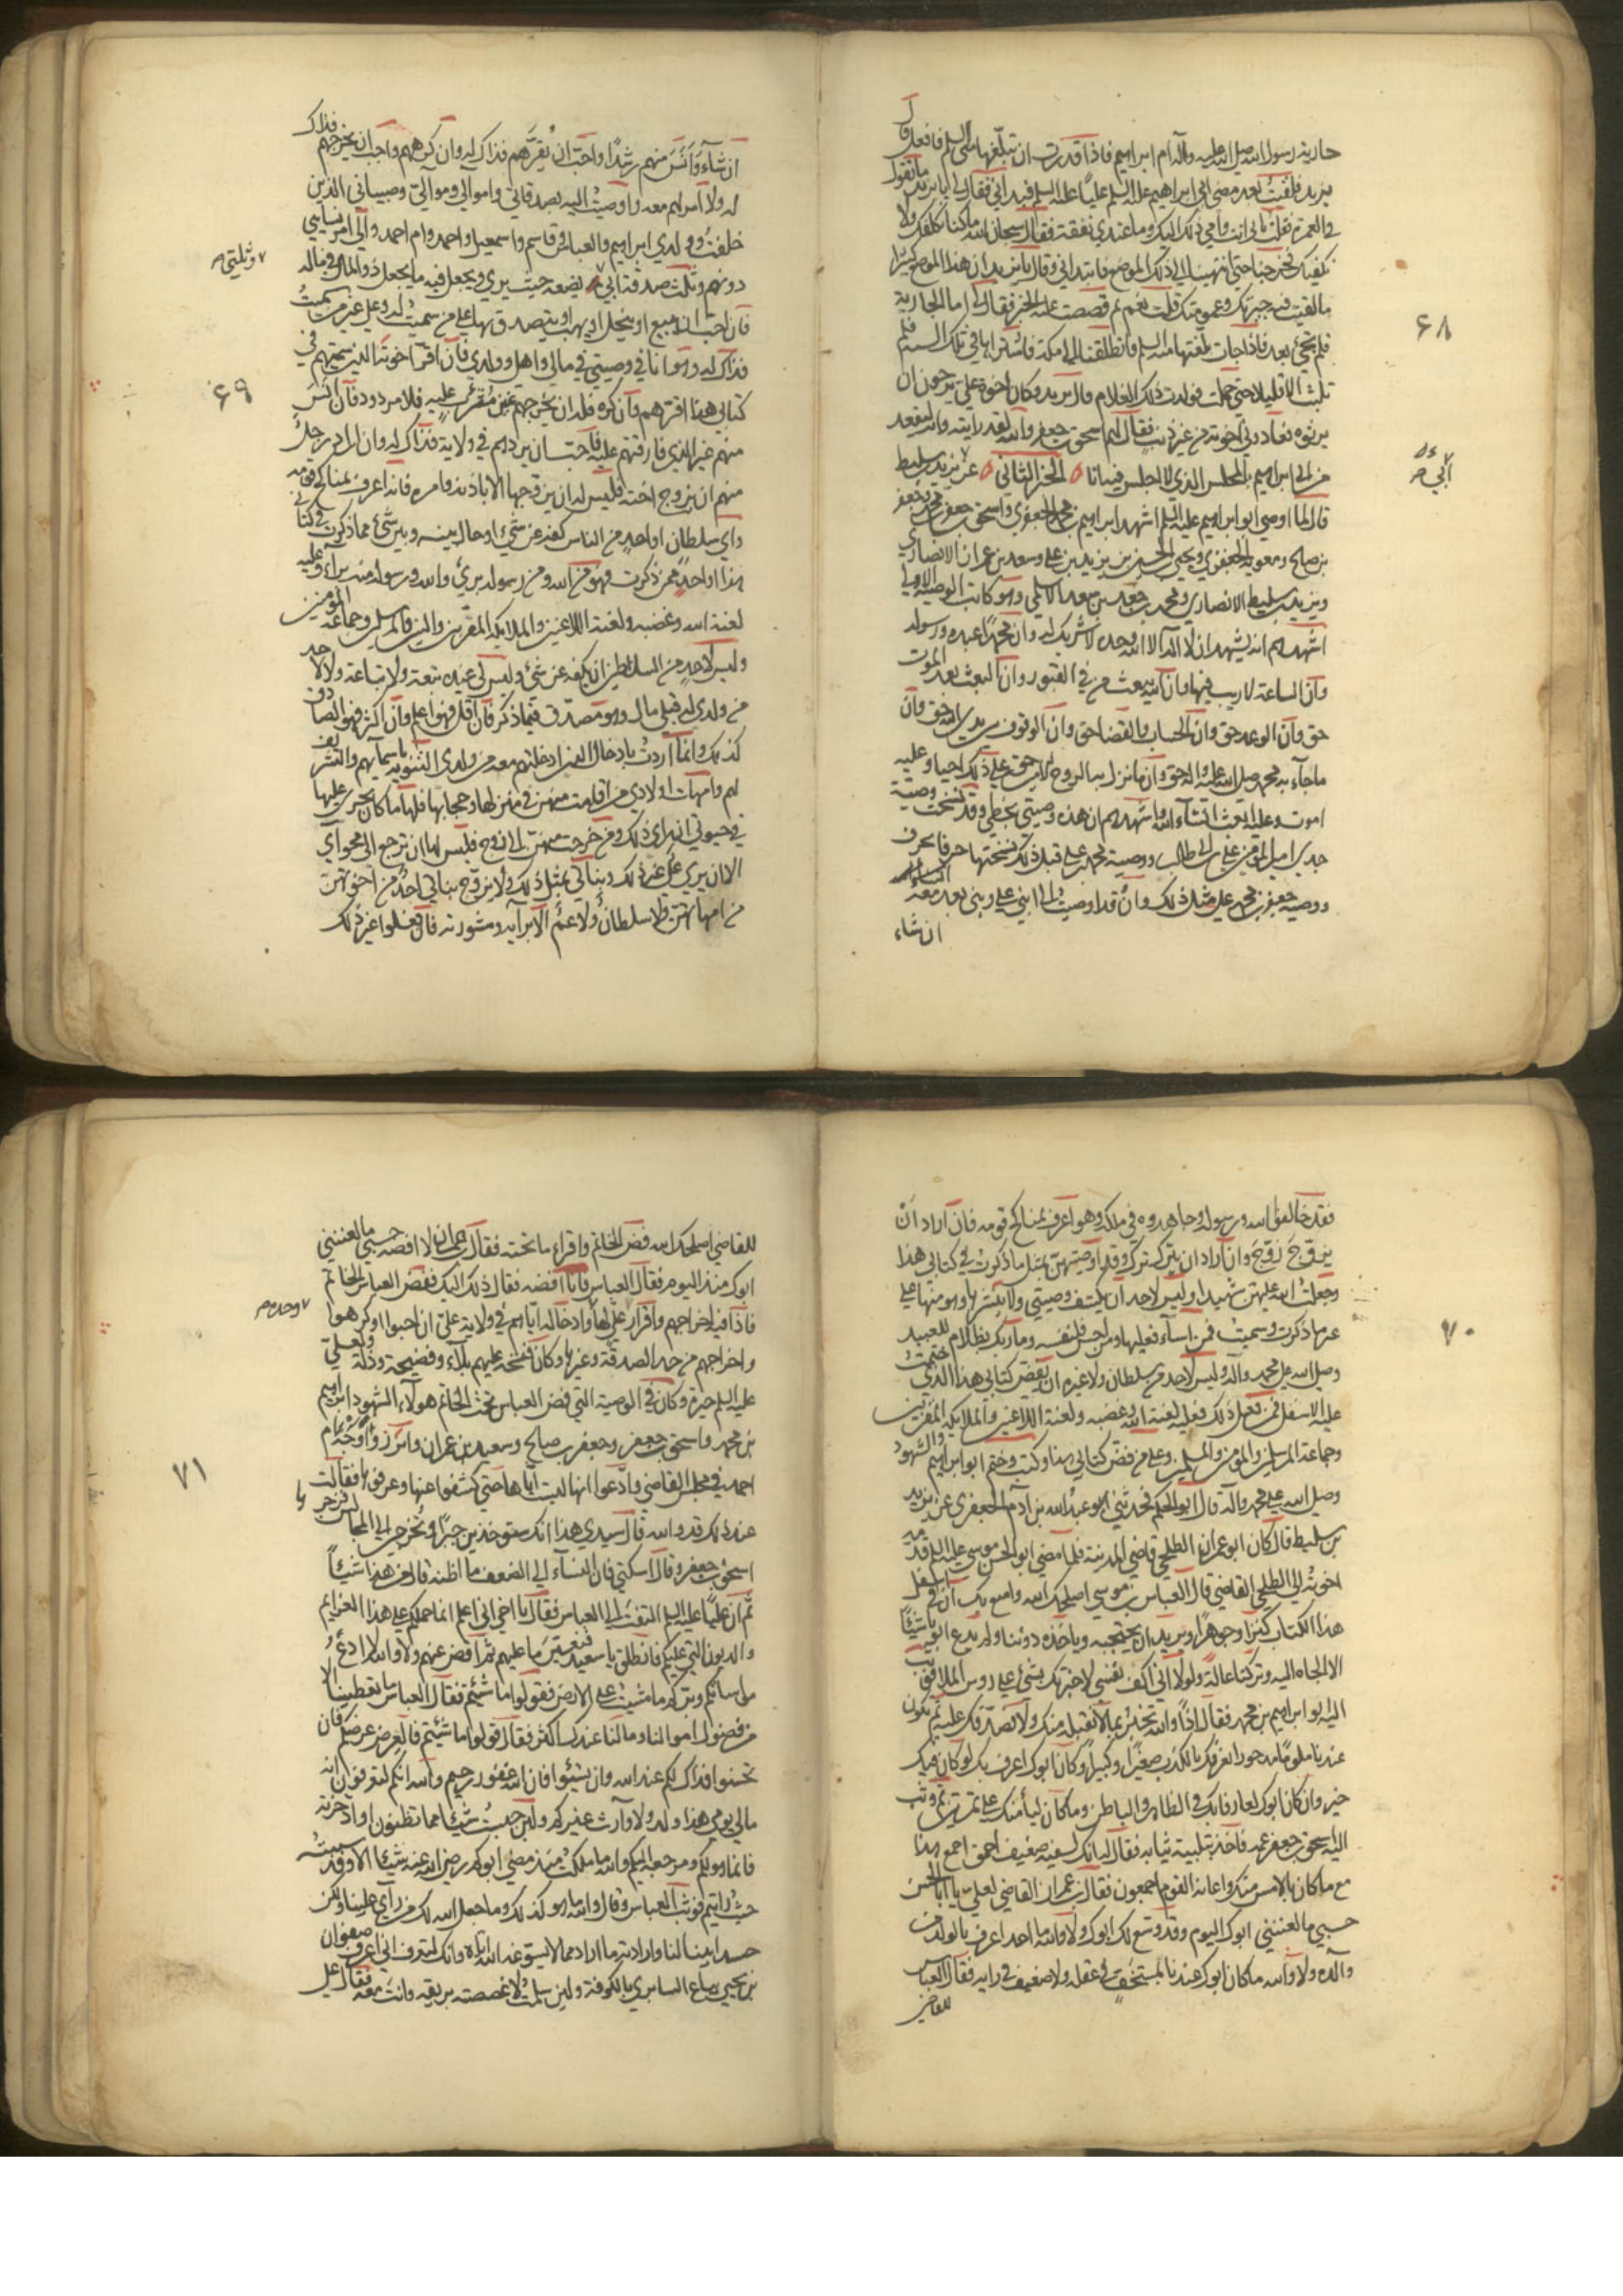 جارية رسول الله صلى الله عليه وآله ام ابراهيم فاذا قدرت ان تبلغها منى السلم فافعل قال
يزيد فلقيت بعد مضى ابى ابراهيم عليه السلم عليا عليه السلم فبدانى فقال لى يا يزيد ما تقول
فى العمرة فقلت بابى انت وامى ذلك اليك وما عندى نفقة فقال سبحان الله ما كنا نكلفك ولا
نكفيك فخرجنا حتى انتهينا الى ذلك الموضع فابتدانى وقال يا يزيد ان هذا الموضع كثيرا
ما لقيت فيه جيرتك وعمومتك قلت نعم ثم قصصت عليه الخبر فقال لى اما الجارية
فلم تجئ بعد فاذا جاءت بلغتها منه السلم فانطلقنا الى مكة فاشتراها فى تلك السنة فلم
تلبث الا قليلا حتى حملت فولدت ذلك الغلام قال يزيد وكان اخوة على يرجون ان
يرثوه فعادونى اخوته من غير ذنب فقال لهم اسحق بن جعفر والله لقد رايته وانه ليقعد
من ابى ابراهيم بالمجلس الذى لا اجلس فيه انا الجزء الثانى عن يزيد بن سليط
قال لما اوصى ابو ابراهيم عليه السلم اشهد ابراهيم بن محمد الجعفرى واسحق بن جعفر بن محمد وجعفر
بن صالح ومعوية الجعفرى ويحيى بن الحسين بن زيد بن على وسعد بن عمران الانصارى
ويزيد بن سليط الانصارى ومحمد بن جعد بن سعد الاسلمى وهو كاتب الوصية الاولى
اشهدهم انه يشهد ان لا اله الا الله وحده لا شريك له وان محمدا عبده ورسوله
وان الساعة لا ريب فيها وان الله يبعث من فى القبور وان البعث بعد الموت
حق وان الوعد حق وان الحساب والقضا حق وان الوقوف بين يدى الله حق وان
ما جاء به محمد صلى الله عليه واله حق وان ما نزل به الروح الامين حق على ذلك احيا وعليه
اموت وعليه ابعث ان شاء الله واشهدهم ان هذه وصيتى بخطى وقد نسخت وصية
جدى امير المؤمنين على بن ابى طالب ووصية محمد بن على قبل ذلك نسختها حرفا بحرف
ووصية جعفر بن محمد على مثل ذلك وانى قد اوصيت الى ابنى على وبنى بعد معه
ان شاء
۶۸
ابى
ان شاء وانس منهم رشدا واحب ان يقرهم فذاك له وان كرههم واحب ان يخرجهم فذاك
له ولا امر لهم معه واوصيت اليه بصدقاتى واموالى وموالى وصبيانى الذين
خلفت وولدى ابراهيم والعباس وقاسم واسمعيل واحمد وام احمد والى على امر نسايى
دونهم وثلث صدقة ابى يضعه حيث يرى ويجعل فيه ما يجعل ذو المال فى ماله
فان احب ان يبيع او ينحل او يهب او يتصدق بها على من سميت له وعلى غير من سميت
فذاك له وهو انا فى وصيتى فى مالى واهلى وولدى فان اقر اخوته الذين سميتهم فى
كتابى هذا اقرهم وان كره فله ان يخرجهم غير مثرب عليه فلا مردود فان انس
منهم غير الذى فارقتهم عليه فاحب ان يردهم فى ولاية فذاك له وان اراد رجل
منهم ان يزوج اخته فليس له ان يزوجها الا باذنه وامره فانه اعرف بمناكح قومه
واى سلطان او احد من الناس كفه عن شئ او حال بينه وبين شئ مما ذكرت فى كتابى
هذا او احد ممن ذكرت فهو من الله ومن رسوله برئ والله ورسوله منه براء وعليه
لعنة الله وغضبه ولعنة اللاعنين والملايكة المقربين والنبيين والمرسلين وجماعة المؤمنين
وليس لاحد من السلاطين ان يكفه عن شئ وليس لى عنده تبعة ولا تباعة ولا لاحد
من ولدى له قبلى مال وهو مصدق فيما ذكر فان اقل فهو اعلم وان اكثر فهو الصادق
كذلك وانما اردت بادخال الذين ادخلتهم معه من ولدى التنويه باسمايهم والتشريف
لهم وامهات اولادى من اقامت منهن فى منزلها وحجابها فلها ما كان يجرى عليها
فى حيوتى ان راى ذلك ومن خرجت منهن الى زوج فليس لها ان ترجع الى محواى
الا ان يرى على غير ذلك وبناتى بمثل ذلك ولا يزوج بناتى احد من اخوتهن
من امهاتهن ولا سلطان ولا عم الا برايه ومشورته فان فعلوا غير ذلك
وثلثى
۶۹
فقد خالفوا الله ورسوله وجاهدوه فى ملكه وهو اعرف بمناكح قومه فان اراد ان
يزوج زوج وان اراد ان يترك ترك وقد اوصيتهن بمثل ما ذكرت فى كتابى هذا
وجعلت الله عليهن شهيدا وليس لاحد ان يكشف وصيتى ولا ينشرها وهو منها على
غير ما ذكرت وسميت فمن اساء فعليها ومن احسن فلنفسه وما ربك بظلام للعبيد
وصلى الله على محمد واله وليس لاحد من سلطان ولا غيره ان يفض كتابى هذا الذى ختمت
عليه الاسفل فمن فعل ذلك فعليه لعنة الله وغضبه ولعنة اللاعنين والملايكة المقربين
وجماعة المرسلين والمؤمنين والمسلمين وعلى من فض كتابى هذا وكتب وختم ابو ابراهيم والشهود
وصلى الله على محمد وآله قال ابو الحكم فحدثنى ابو عبد الله بن آدم الجعفرى عن يزيد
بن سليط قال كان ابو عمران الطلحى قاضى المدينة فلما مضى ابو الحسن موسى عليه السلم قدمه
اخوته الى الطلحى القاضى قال العباس بن موسى اصلحك الله وامتع بك ان فى اسفل
هذا الكتاب كنزا وجوهرا ويريد ان يحتجبه وياخذه دوننا ولم يدع ابونا شيئا
الا الجاه اليه وتركنا عالة ولولا انى اكف نفسى لاخبرتك بشئ على رءوس الملا فوثب
اليه ابو ابراهيم بن محمد فقال اذا والله تخبر بما لا نقبله منك ولا نصدقك عليه ثم تكون
عندنا ملوما مدحورا نعرفك بالكذب صغيرا وكبيرا وكان ابوك اعرف بك لو كان فيك
خير وان كان ابوك لعارفا بك فى الظاهر والباطن وما كان ليأمنك على تمرتين ثم وثب
اليه اسحق بن جعفر عمه فاخذ بتلبيبه ثيابه فقال له انك لسفيه ضعيف احمق اجمع هذا
مع ما كان بالامس منك واعانه القوم اجمعون فقال بن عمران القاضى لعلى يا ابا الحسن
حسبى ما لعننى ابوك اليوم وقد وسع لك ابوك ولا والله ما احد اعرف بالولد من
والده ولا والله ما كان ابوك عندنا بمستخف فى عقله ولا ضعيف فى رايه فقال العباس
للقاضى
۷۰
للقاضى اصلحك الله فض الخاتم واقراء ما تحته فقال لا افضه حسبى ما لعننى
ابوك منذ اليوم فقال العباس فانا افضه فقال ذلك اليك ففض العباس الخاتم
فاذا فيه اخراجهم واقرار على لها وادخاله اياهم فى ولاية على ان احبوا او كرهوا
واخراجهم من حد الصدقة وغيرها وكان فتحه عليهم بلاء وفضيحة وذلة ولعلى
عليه السلم خيرة وكان فى الوصية التى فض العباس تحت الخاتم هولاء الشهود ابراهيم
بن محمد واسحق بن جعفر وجعفر بن صالح وسعيد بن عمران وابرزوا وجه ام
احمد فى مجلس القاضى وادعوا انها ليست اياها حتى كشفوا عنها وعرفوها فقالت
عند ذلك قد والله قال سيدى هذا انك ستوخذين جبرا وتخرجى الى المجالس فزجرها
اسحق بن جعفر وقال اسكتى فان النساء الى الضعف ما اظنه قال من هذا شيئا
ثم ان عليا عليه السلم التفت الى العباس فقال يا اخى انى اعلم انما حملكم على هذا الغرايم
والديون التى عليكم فانطلق يا سعيد فتعين ما عليهم ثم اقض عنهم ولا والله لا ادع
مواساتكم وبركم ما مشيت على الارض فقولوا ما شيتم فقال العباس ما تعطينا الا
من فضول اموالنا وما لنا عندك اكثر فقال قولوا ما شيئتم فالعرض عرضكم فان
تحسنوا فذاك لكم عند الله وان تسيئوا فان الله غفور رحيم والله انكم لتعرفون انه
مالى يومى هذا ولد ولا وارث غيركم ولئن حبست شيئا مما تظنون او ادخرته
فانما هو لكم ومرجعه اليكم والله ما ملكت منذ مضى ابوكم رضى الله عنه شيئا الا وقد سيبته
حيث رايتم فوثب العباس وقال والله ما هو كذلك وما جعل الله لك من راى علينا ولكن
حسد ابينا لنا وارادته ما اراد مما لا يسوغه الله اياه وانك لتعرف انى اعرف صفوان
بن يحيى بياع السابرى بالكوفة ولئن سلمت لاغصصته بريقه وانت معه فقال على
وحده
۷۱